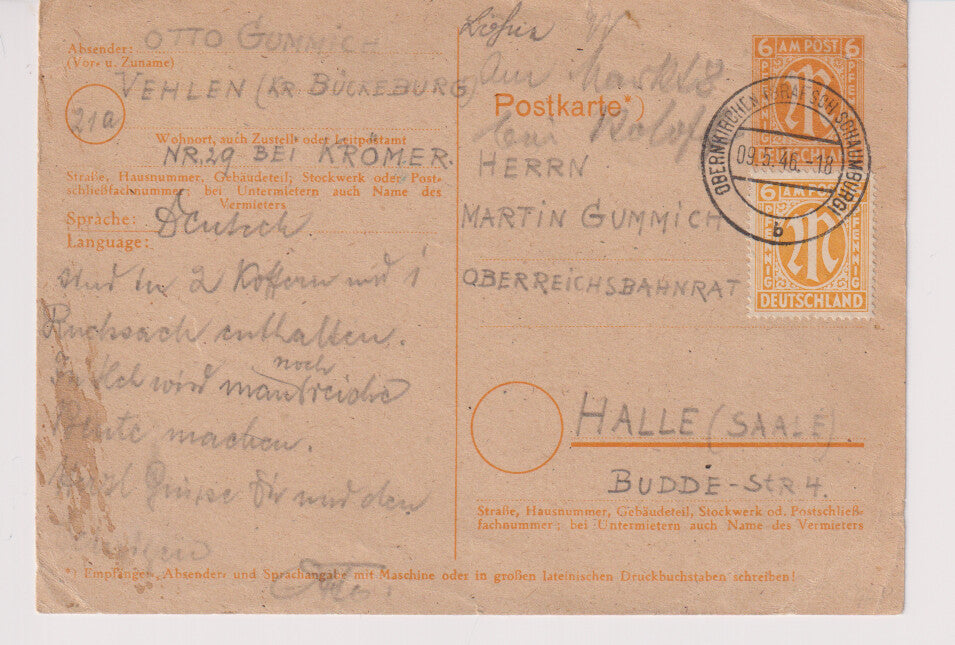 Absender: OTTO GUMMICH
(Vor- u. Zuname)
VEHLEN (KR BÜCKEBURG)
21a
Wohnort, auch Zustell- oder Leitpostamt
NR. 29 BEI KRÖMER.
Straße, Hausnummer, Gebäudeteil, Stockwerk oder Post-
schließfachnummer; bei Untermietern auch Name des
Vermieters
Sprache: Deutsch
Language:
und in 2 Koffern und 1
Rucksack enthalten.
Ich wird noch
machen.
Grüße Dir und den
Otto.
Am Markt 8
bei
Postkarte*)
HERRN
MARTIN GUMMICH
OBERREICHSBAHNRAT
HALLE (SAALE)
BUDDE-STR 4.
Straße, Hausnummer, Gebäudeteil, Stockwerk od. Postschließ-
fachnummer; bei Untermietern auch Name des Vermieters
6 AM POST 6
PFENNIG PFENNIG
DEUTSCHLAND
OBERNKIRCHEN (GRAFSCH. SCHAUMBURG)
09.5.46.-18
b
6 AM POST
PFENNIG PFENNIG
DEUTSCHLAND
*) Empfänger-, Absender- und Sprachangabe mit Maschine oder in großen lateinischen Druckbuchstaben schreiben!